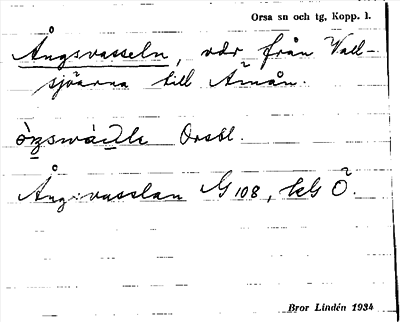 Orsa sn och tg, Kopp. l.
Ångsvasseln, vdr från Vall-
sjöarna till Åmån.
òzswádlę Orsbl.
Ång-vasslan G 108, kG Ö.
Bror Lindén 1934